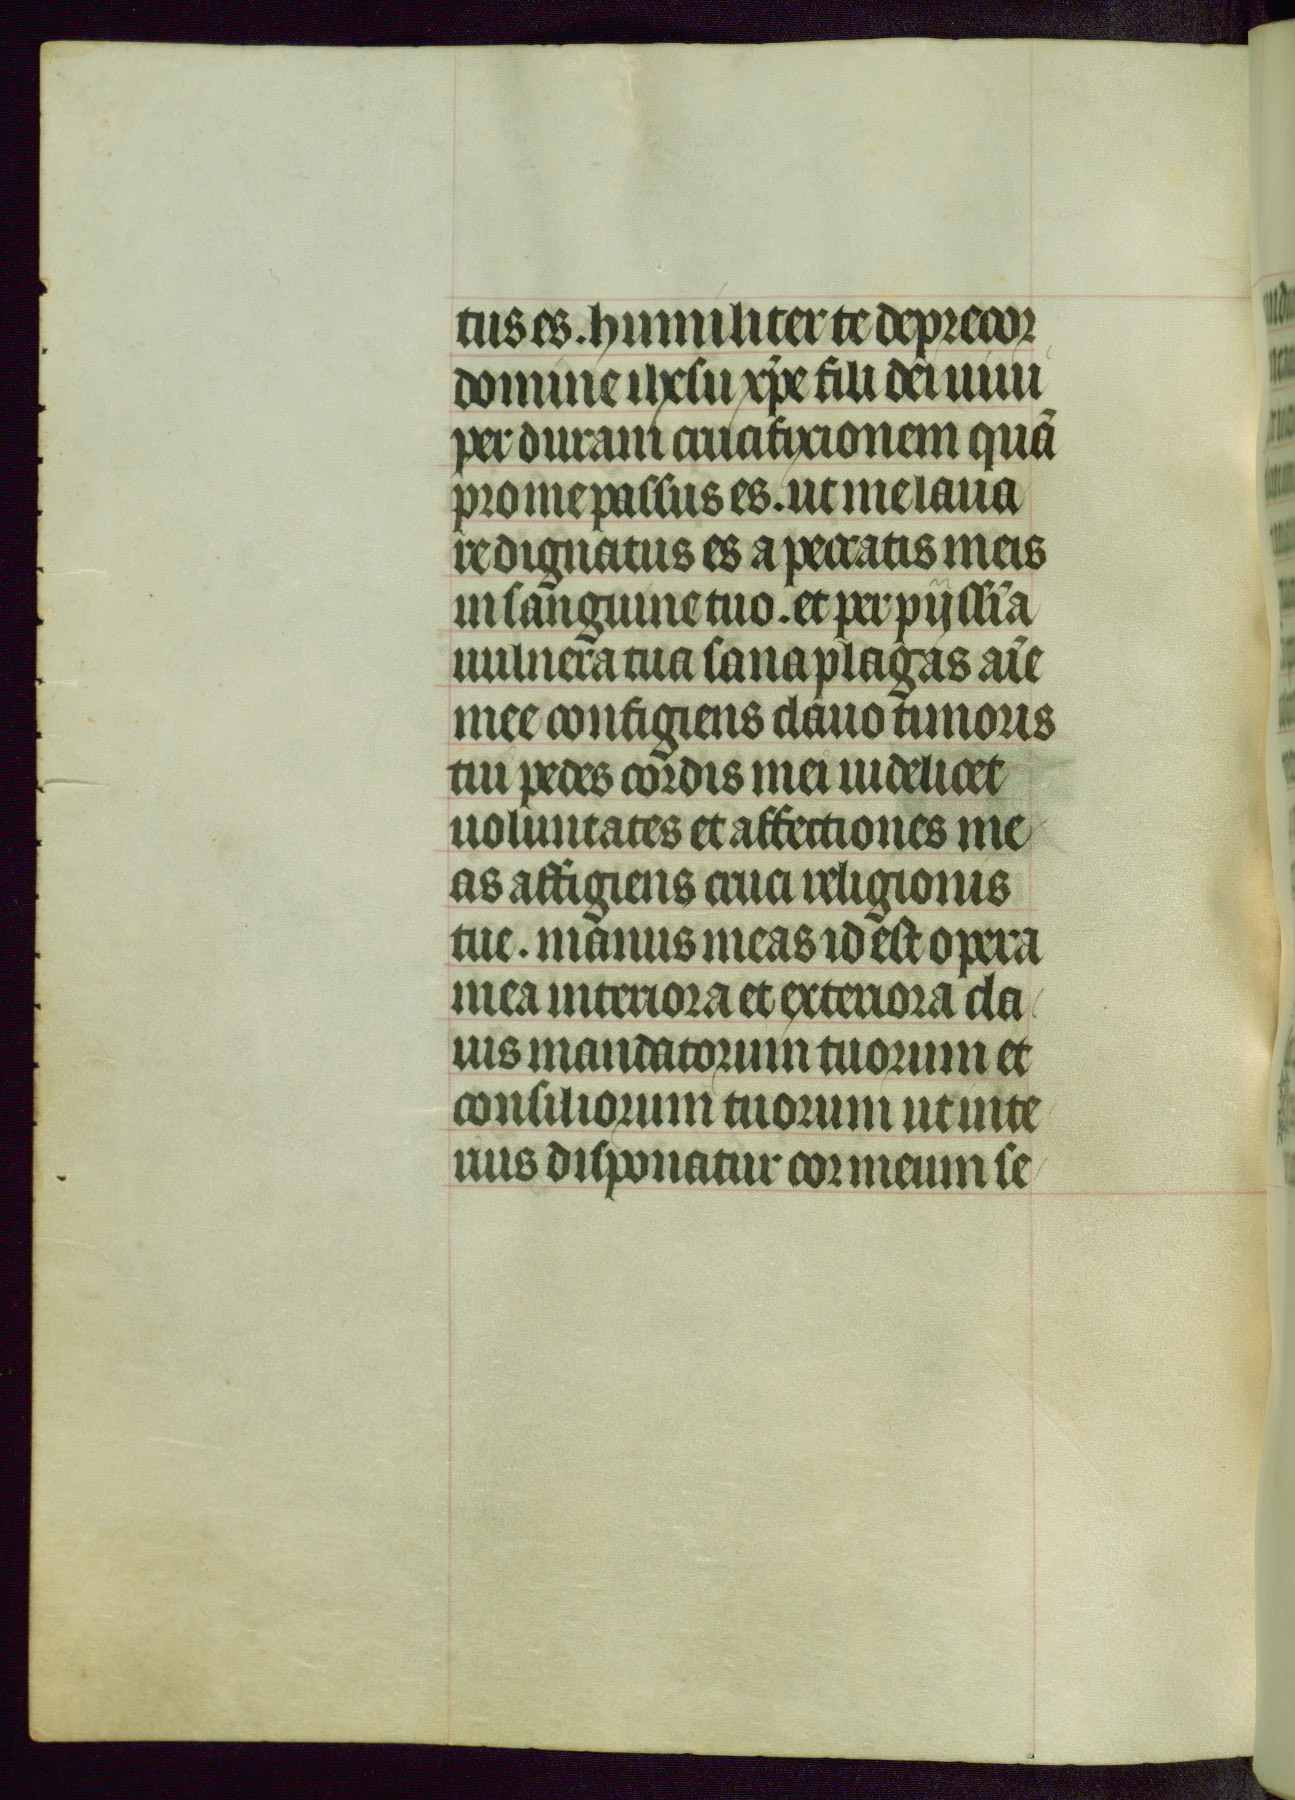 tus es. humiliter te deprecor
domine ihesu xp̄e fili dei uiui
per duram crucifixionem quā
pro me passus es. ut me laua
re dignatus es a peccatis meis
in sanguine tuo. et per pijssīa
uulnera tua sana plagas aīe
mee configens clauo timoris
tui pedes cordis mei uidelicet
uoluntates et affectiones me
as affigens cruci religionis
tue. manus meas id est opera
mea interiora et exteriora cla
uis mandatorum tuorum et
consiliorum tuorum ut inte
rius disponatur cor meum se